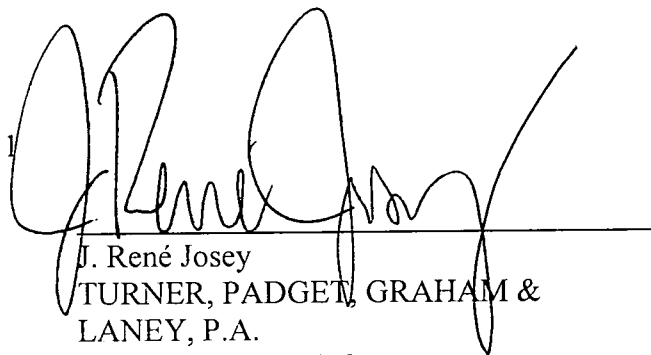 J. René Josey
J. René Josey
TURNER, PADGET, GRAHAM &
LANEY, P.A.